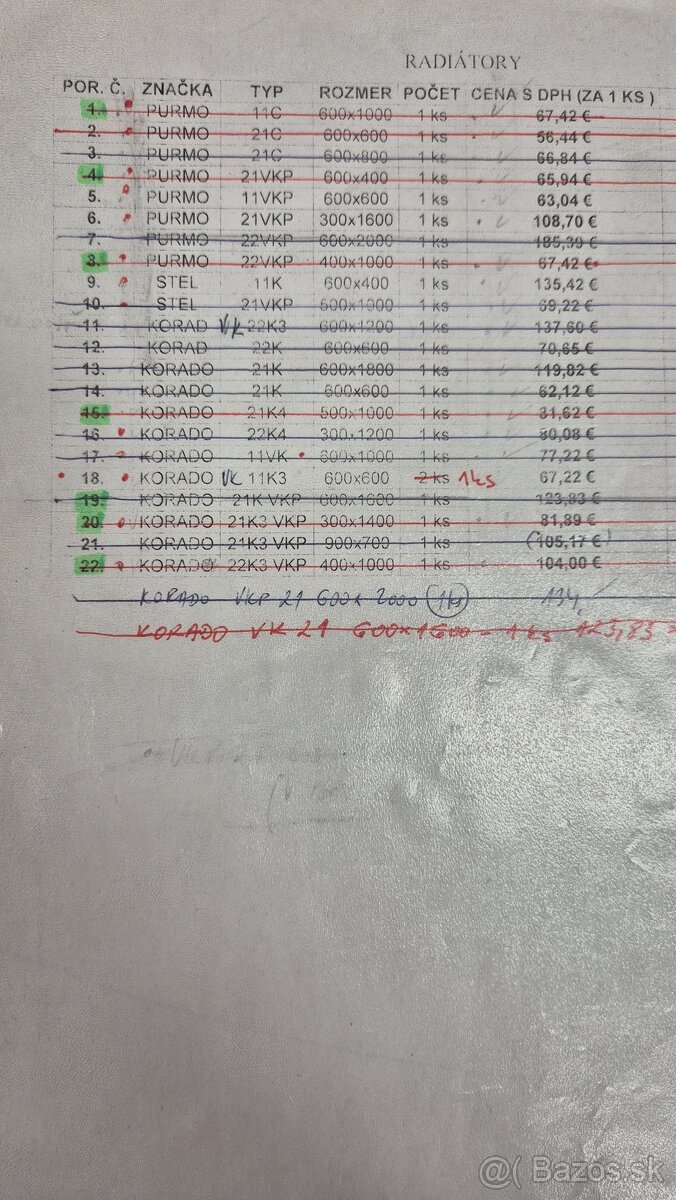 RADIÁTORY
POR. Č. ZNAČKA TYP ROZMER POČET CENA S DPH (ZA 1 KS )
1. PURMO 11C 600x1000 1 ks 67,42 €
2. PURMO 21C 600x600 1 ks 56,44 €
3. PURMO 21C 600x800 1 ks 66,84 €
4. PURMO 21VKP 600x400 1 ks 65,94 €
5. PURMO 11VKP 600x600 1 ks 63,04 €
6. PURMO 21VKP 300x1600 1 ks 108,70 €
7. PURMO 22VKP 600x2000 1 ks 185,39 €
8. PURMO 22VKP 400x1000 1 ks 67,42 €
9. STEL 11K 600x400 1 ks 135,42 €
10. STEL 21VKP 500x1000 1 ks 69,22 €
11. KORAD VK 22K3 600x1200 1 ks 137,60 €
12. KORAD 22K 600x600 1 ks 70,65 €
13. KORADO 21K 600x1800 1 ks 119,82 €
14. KORADO 21K 600x600 1 ks 62,12 €
15. KORADO 21K4 500x1000 1 ks 81,62 €
16. KORADO 22K4 300x1200 1 ks 80,08 €
17. KORADO 11VK 600x1000 1 ks 77,22 €
18. KORADO VK 11K3 600x600 2 ks 1ks 67,22 €
19. KORADO 21K VKP 600x1600 1 ks 123,83 €
20. KORADO 21K3 VKP 300x1400 1 ks 81,89 €
21. KORADO 21K3 VKP 900x700 1 ks (105,17 €)
22. KORADO 22K3 VKP 400x1000 1 ks 104,00 €
KORADO VKP 21 600x 2000 (1ks) 134,
KORADO VK 21 600x1600 - 1 ks 123,83
@( Bazos.sk